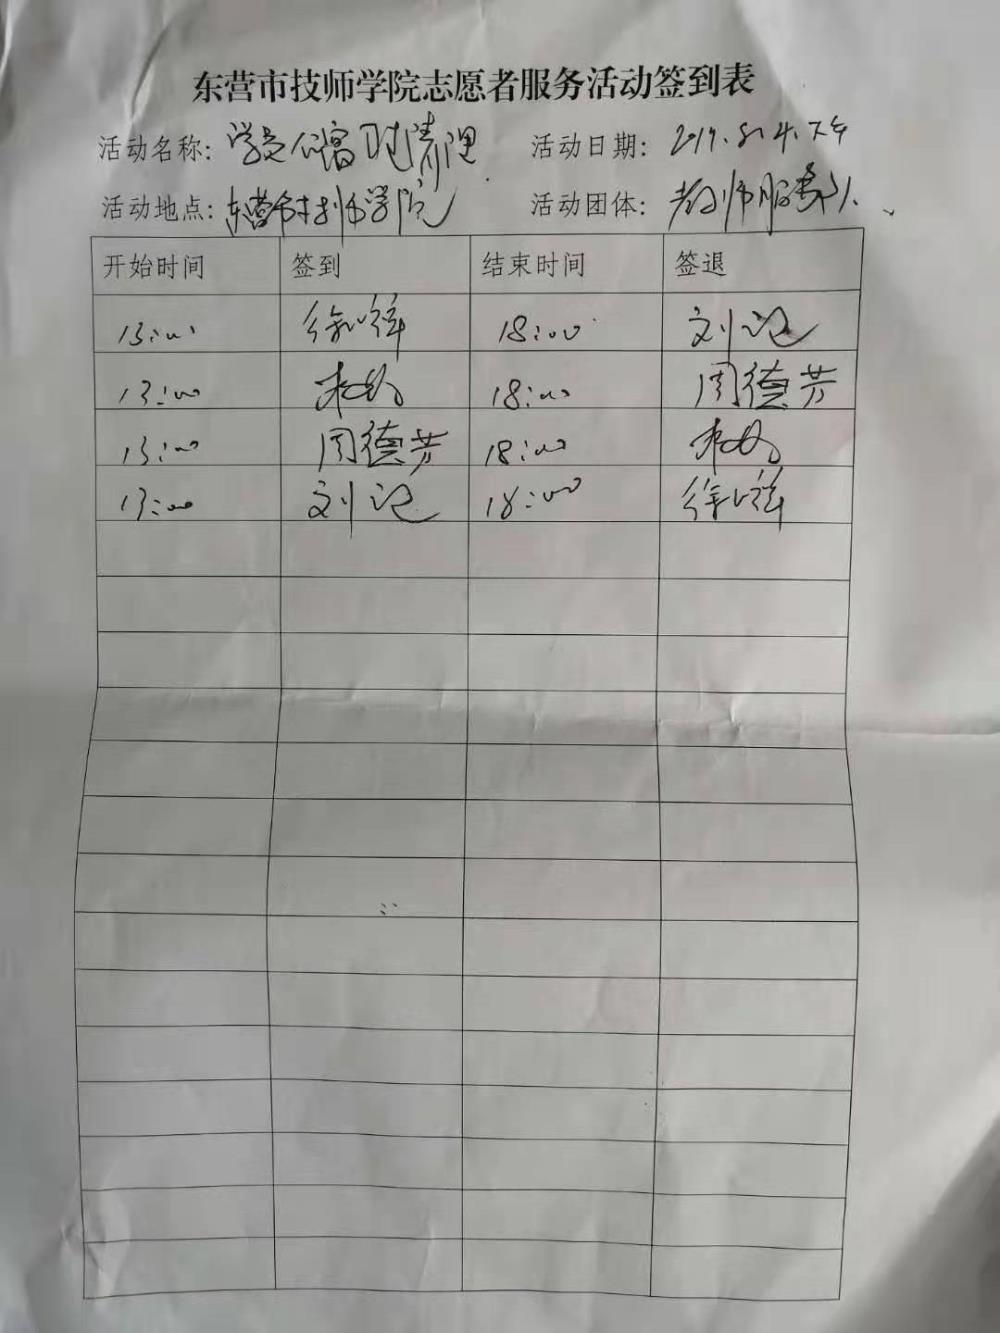 东营市技师学院志愿者服务活动签到表
活动名称: 学员公寓 清理 活动日期: 2019.8.4.下午
活动地点: 东营市技师学院 活动团体: 教师服务队
开始时间 签到 结束时间 签退
13:00 18:00 刘
13:00 18:00 周德芳
13:00 周德芳 18:00
13:00 刘 18:00